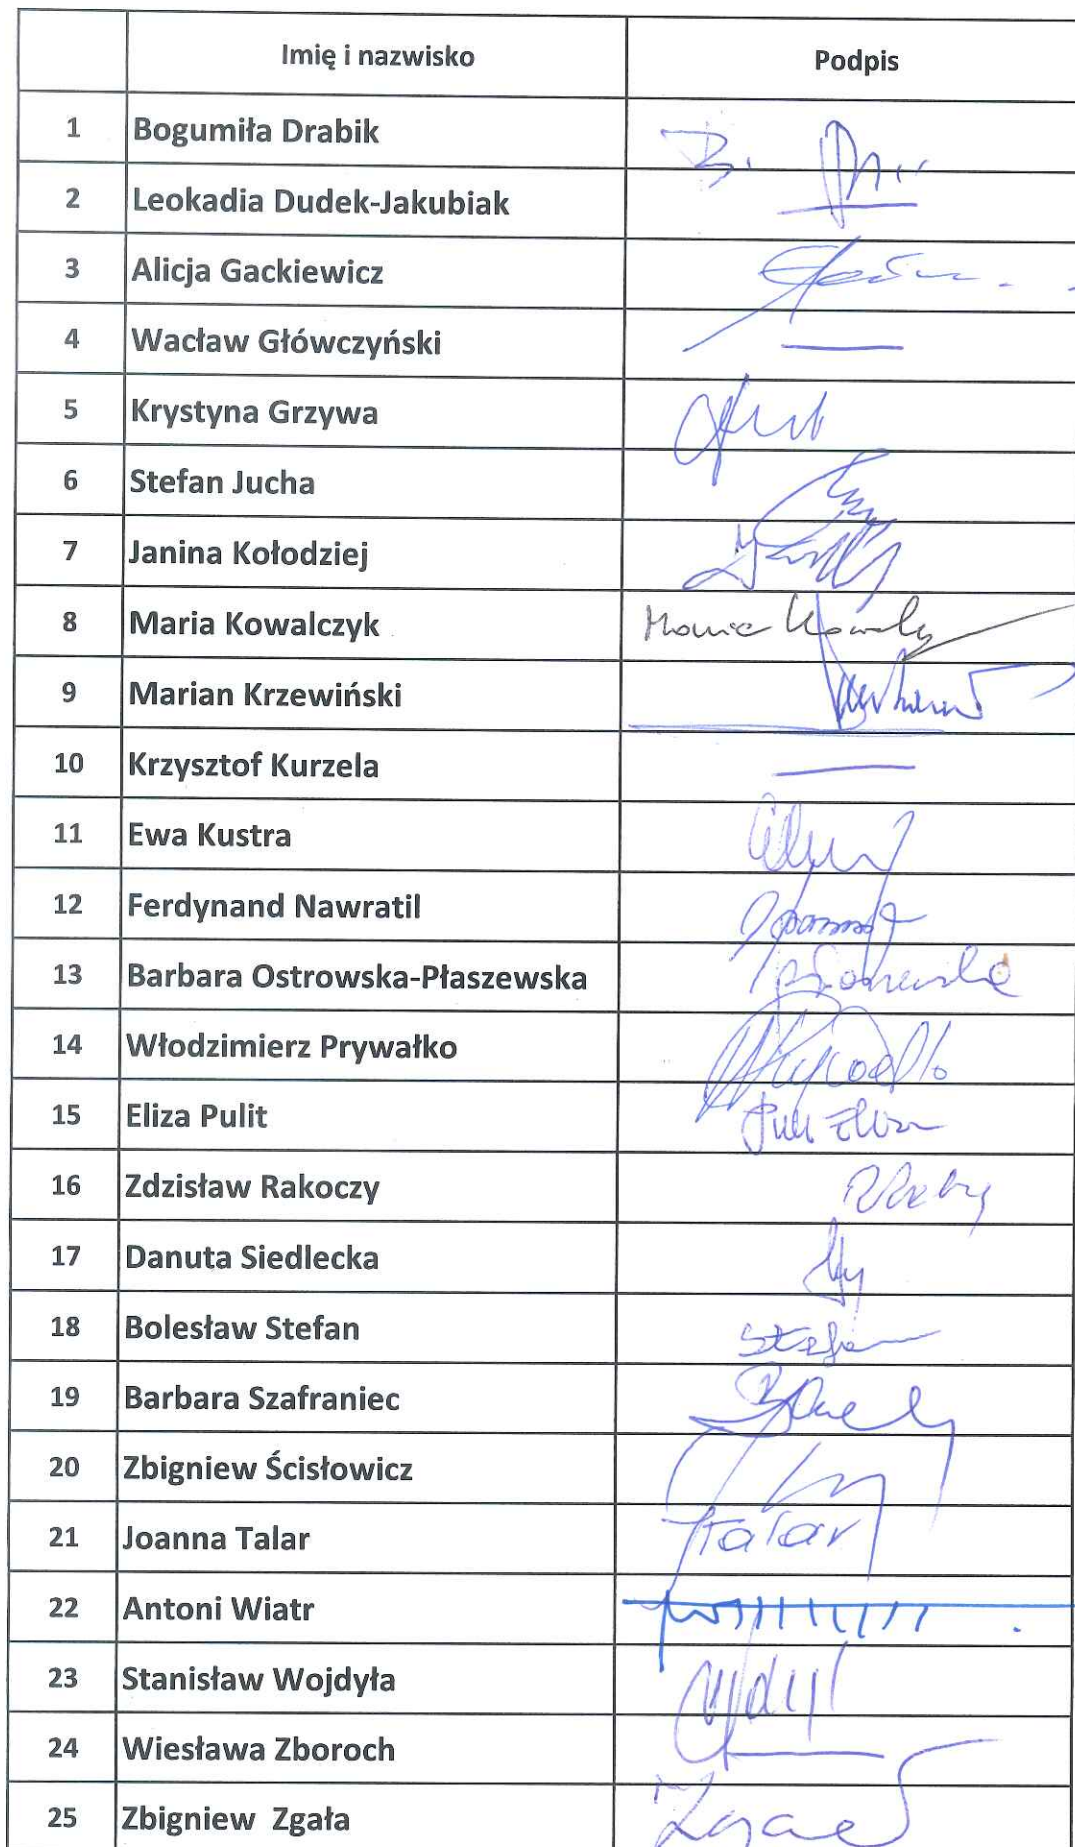 Imię i nazwisko Podpis
1 Bogumiła Drabik
2 Leokadia Dudek-Jakubiak
3 Alicja Gackiewicz
4 Wacław Główczyński
5 Krystyna Grzywa
6 Stefan Jucha
7 Janina Kołodziej
8 Maria Kowalczyk
9 Marian Krzewiński
10 Krzysztof Kurzela
11 Ewa Kustra
12 Ferdynand Nawratil
13 Barbara Ostrowska-Płaszewska
14 Włodzimierz Prywałko
15 Eliza Pulit
16 Zdzisław Rakoczy
17 Danuta Siedlecka
18 Bolesław Stefan Stefan
19 Barbara Szafraniec
20 Zbigniew Ścisłowicz
21 Joanna Talar Talar
22 Antoni Wiatr
23 Stanisław Wojdyła
24 Wiesława Zboroch
25 Zbigniew Zgała